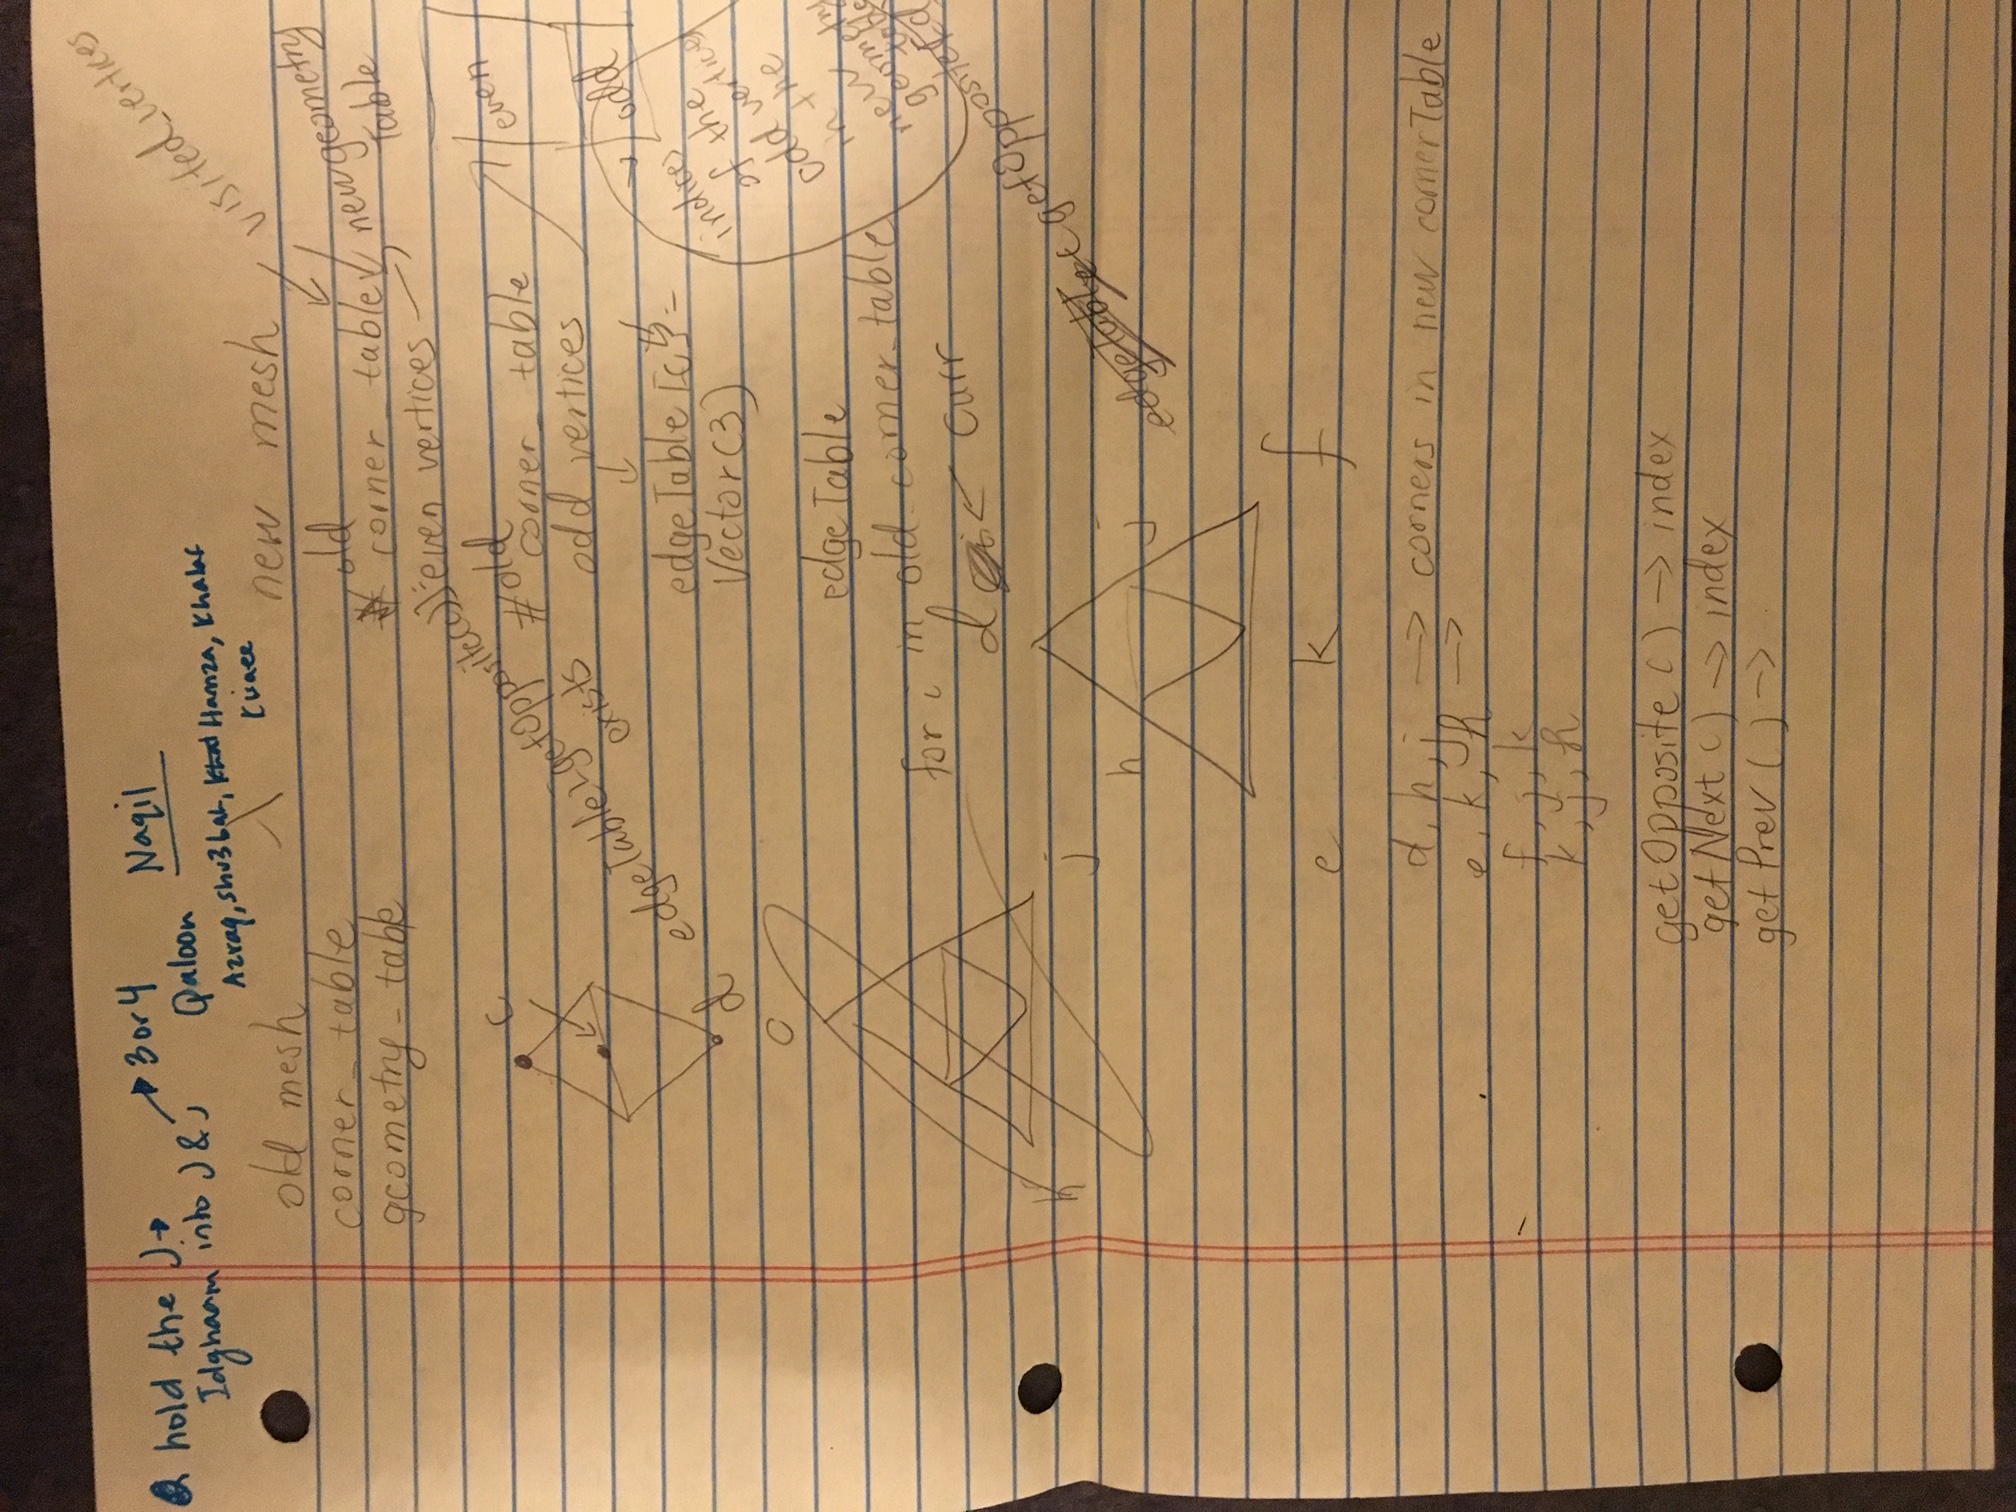 hold the ل →
Idghaam into ل & ر → 3 or 4
Naqil
Qaloon
Azraq, Shu3bah, Hamza, Khalaf
Kisaee
old mesh
corner_table
geometry_table
new mesh
visited_vertices
old
corner_table
new geometry
Table
even vertices
# old
corner_table
odd vertices
even
odd
edgeTable[c] =
Vector(3)
c
d
edgeTable[getOpposite(c)]
exists
indices
of the
odd vertices
in the
new
geometry
table
edgeTable
for i in old corner_table
d ← Curr
c
h
j
getOpposite
d
h
j
e k f
d, h, j → corners in new cornerTable
e, k, h →
f, j, k
k, j, h
getOpposite ( ) → index
getNext ( ) → index
getPrev ( ) →